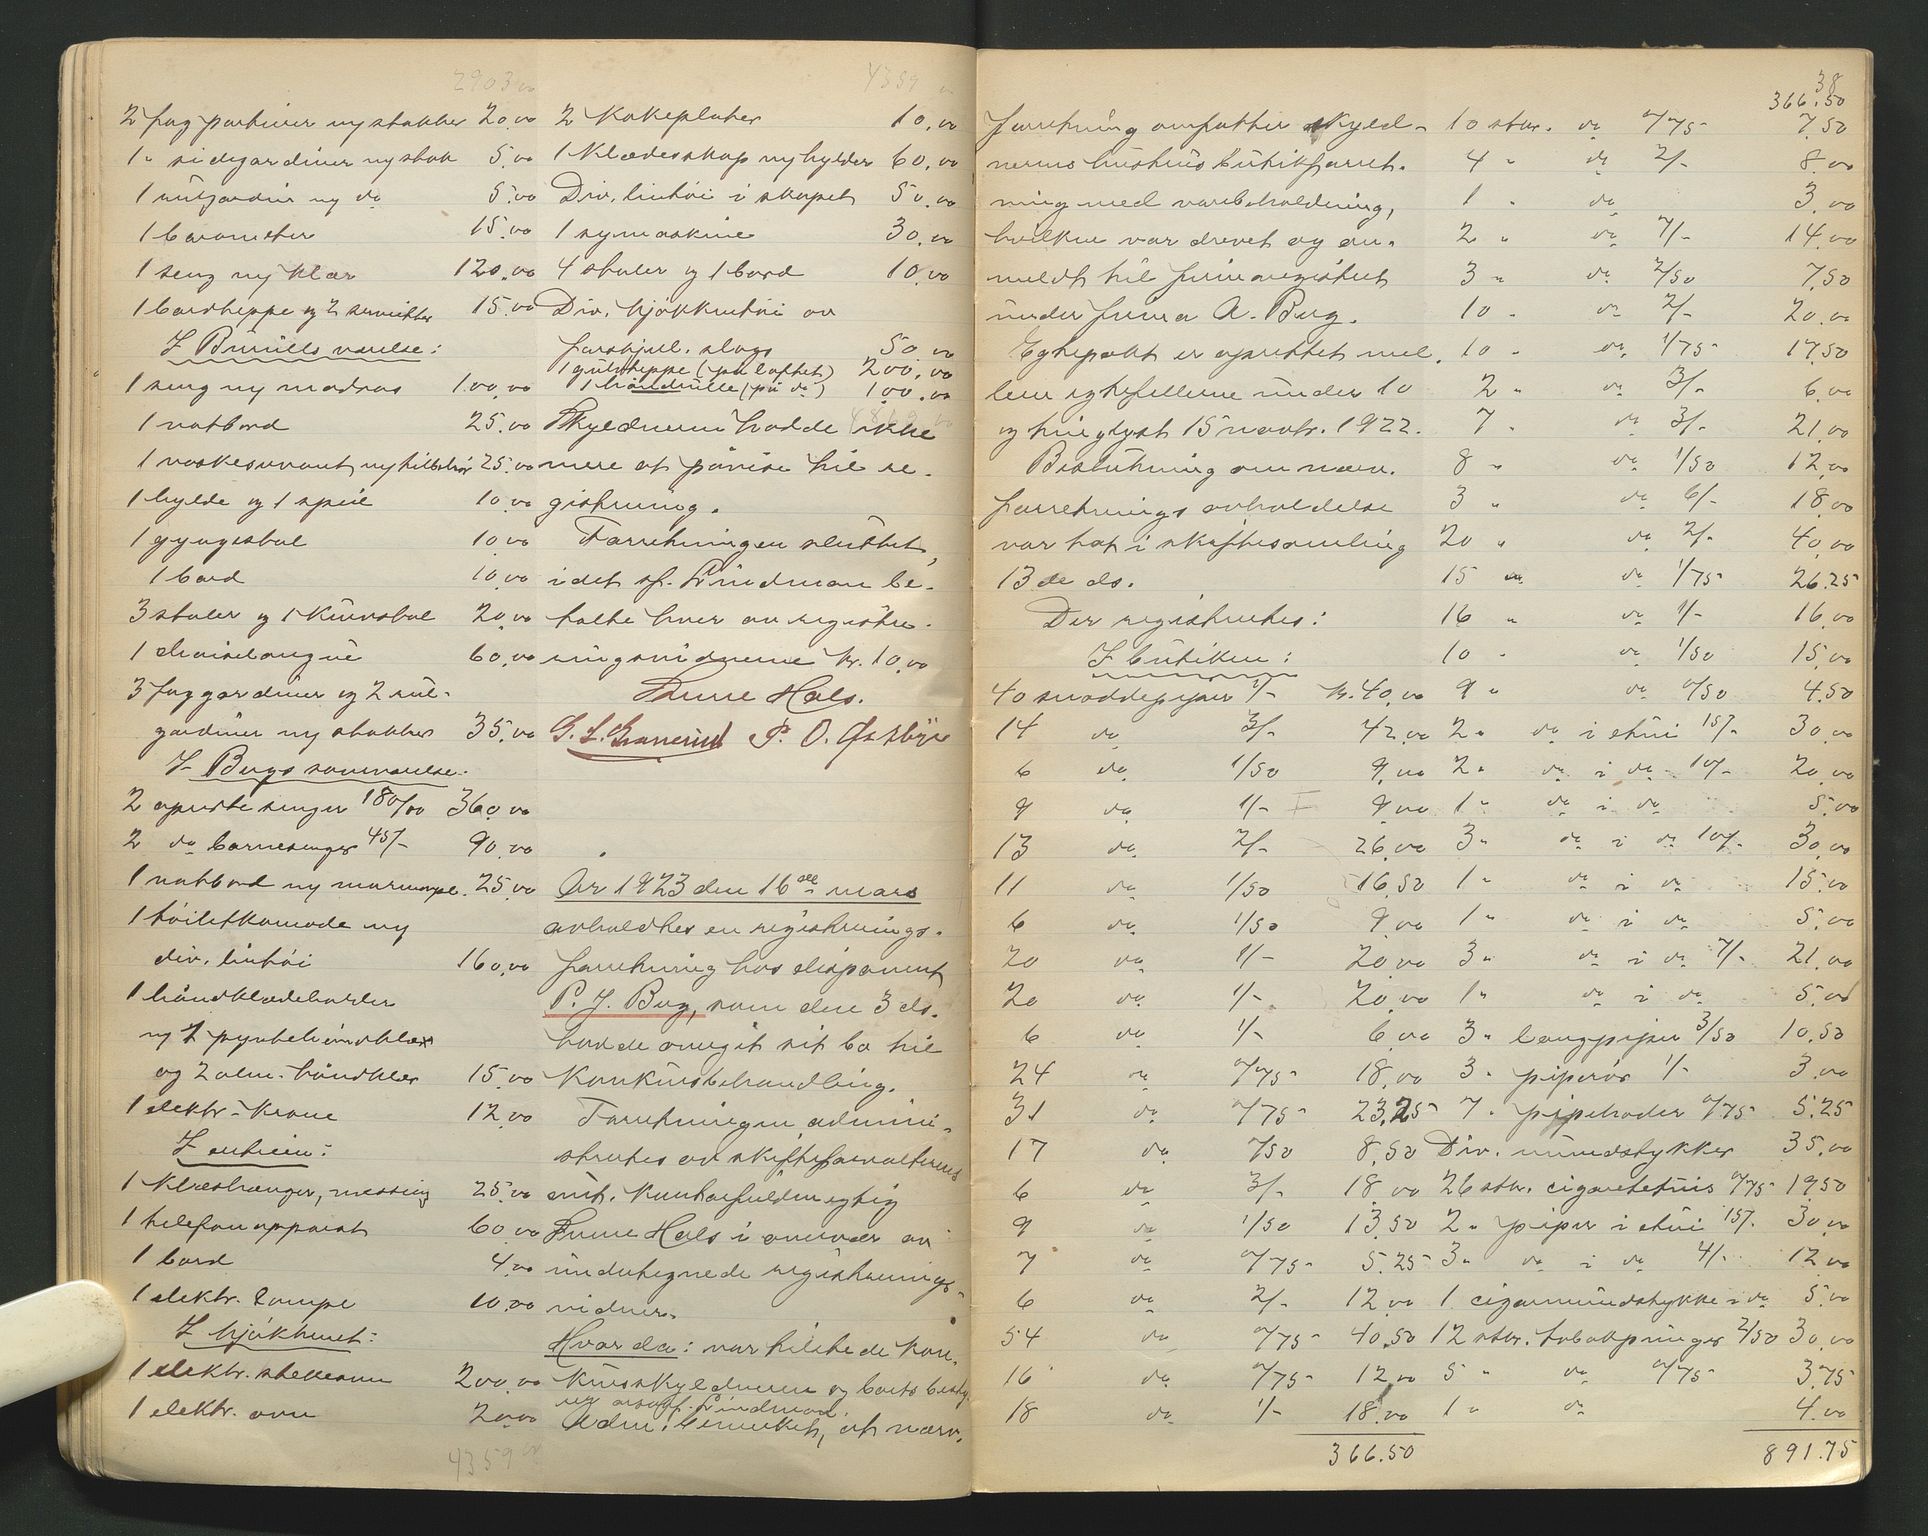 2903.00
2 fag portierer m/ stokker 20.00
1 " sidegardiner m/ stok 5.00
1 rulgardin m/ do 5.00
1 barometer 15.00
1 seng m/ klær 120.00
1 bordteppe og 2 servietter 15.00
I Burulls værelse:
1 seng m/ madras 100.00
1 natbord 25.00
1 vaskeservant m/ tilbehør 25.00
1 hylde og 1 speil 10.00
1 gyngestol 10.00
1 bord 10.00
3 stoler og 1 kurvstol 20.00
1 chaiselongue 60.00
3 fag gardiner og 2 rul-
gardiner m/ stokker 35.00
I Bugs soveværelse:
2 opredte senger 180/00 360.00
2 do barnesenger 45/- 90.00
1 natbord m/ marmorpl. 25.00
1 toiletkomode m/
div. lintøi 160.00
1 håndklædeholder
m/ 1 pyntehåndklæ
og 2 alm. håndklær 15.00
1 elektr. krone 12.00
I entreen:
1 klæshenger, messing 25.00
1 telefonapparat 60.00
1 bord 4.00
1 elektr. lampe 10.00
I kjøkkenet:
1 elektr. stekeovn 200.00
1 elektr. ovn 20.00
4359.00
4359
2 kakeplater 10.00
1 klædesskap m/ hylder 60.00
Div. lintøi i skapet 50.00
1 symaskine 30.00
4 stoler og 1 bord 10.00
Div. kjøkkentøi av
forskjel. slags 50.00
1 gulvteppe (på loftet) 200.00
1 håndrulle (på do) 100.00
Skyldneren hadde ikke
mere at påvise til re-
gistrering.
Forretningen sluttet,
idet sf. Lindman be-
talte hver av registre-
ringsvidnerne kr. 10.00
Sune Hals.
P. O. Østbye
År 1923 den 16de mars
avholdtes en registrerings-
forretning hos disponent
P. J. Bug, som den 3 ds.
hadde avgit sit bo til
konkursbehandling.
Forretningen admini-
strertes av skifteforvalterens
aut. kontorfuldmegtig
Sune Hals i overvær av
undertegnede registrerings-
vidner.
Hvor da: var tilstede kon-
kursskyldneren og boets besty-
rer ovsakf. Lindman.
Adm. bemerket, at nærv.
38
forretning omfatter skyld-
nerens hustrus butikforret-
ning med varebeholdning,
hvilken var drevet og an-
meldt til firmaregistret
under firma A. Bug.
Egtepakt er oprettet mel-
lem egtefellerne under 10
og tinglyst 15 novbr. 1922.
Beslutning om nærv.
forretnings avholdelse
var tat i skiftesamling
13de ds.
Der registrertes:
I butiken:
40 snaddepiper 1/- kr. 40.00
14 do 3/- 42.00
6 do 1/50 9.00
9 do 1/- 9.00
13 do 2/- 26.00
11 do 1/50 16.50
6 do 1/50 9.00
20 do 1/- 20.00
20 do 1/- 20.00
6 do 1/- 6.00
24 do 0/75 18.00
31 do 0/75 23.25
17 do 0/50 8.50
6 do 3/- 18.00
9 do 1/50 13.50
7 do 0/75 5.25
6 do 2/- 12.00
54 do 0/75 40.50
16 do 0/75 12.00
18 do 1/- 18.00
366.50
366.50
10 stkr. do 0/75 7.50
4 " do 2/- 8.00
1 " do 3.00
2 " do 7/- 14.00
3 " do 2/50 7.50
10 " do 2/- 20.00
10 " do 1/75 17.50
2 " do 3/- 6.00
7 " do 3/- 21.00
8 " do 1/50 12.00
3 " do 6/- 18.00
20 " do 2/- 40.00
15 " do 1/75 26.25
16 " do 1/- 16.00
10 " do 1/50 15.00
9 " do 0/50 4.50
2 " do i etui 15/- 30.00
2 " do i do 10/- 20.00
1 " do i do 5.00
3 " do i do 10/- 30.00
1 " do i do 15.00
1 " do i do 5.00
3 " do i do 7/- 21.00
1 " do i do 5.00
3 " langpiper 3/50 10.50
3 " piperør 1/- 3.00
7 " pipehoder 0/75 5.25
Div. mundstykker 35.00
26 stkr. cigaretetuis 0/75 19.50
2 " piper i etui 15/- 30.00
3 " do i do 4/- 12.00
1 cigarmundstykke i do 5.00
12 stkr. tobakpunger 2/50 30.00
5 " do 0/75 3.75
1 " do 4.00
891.75